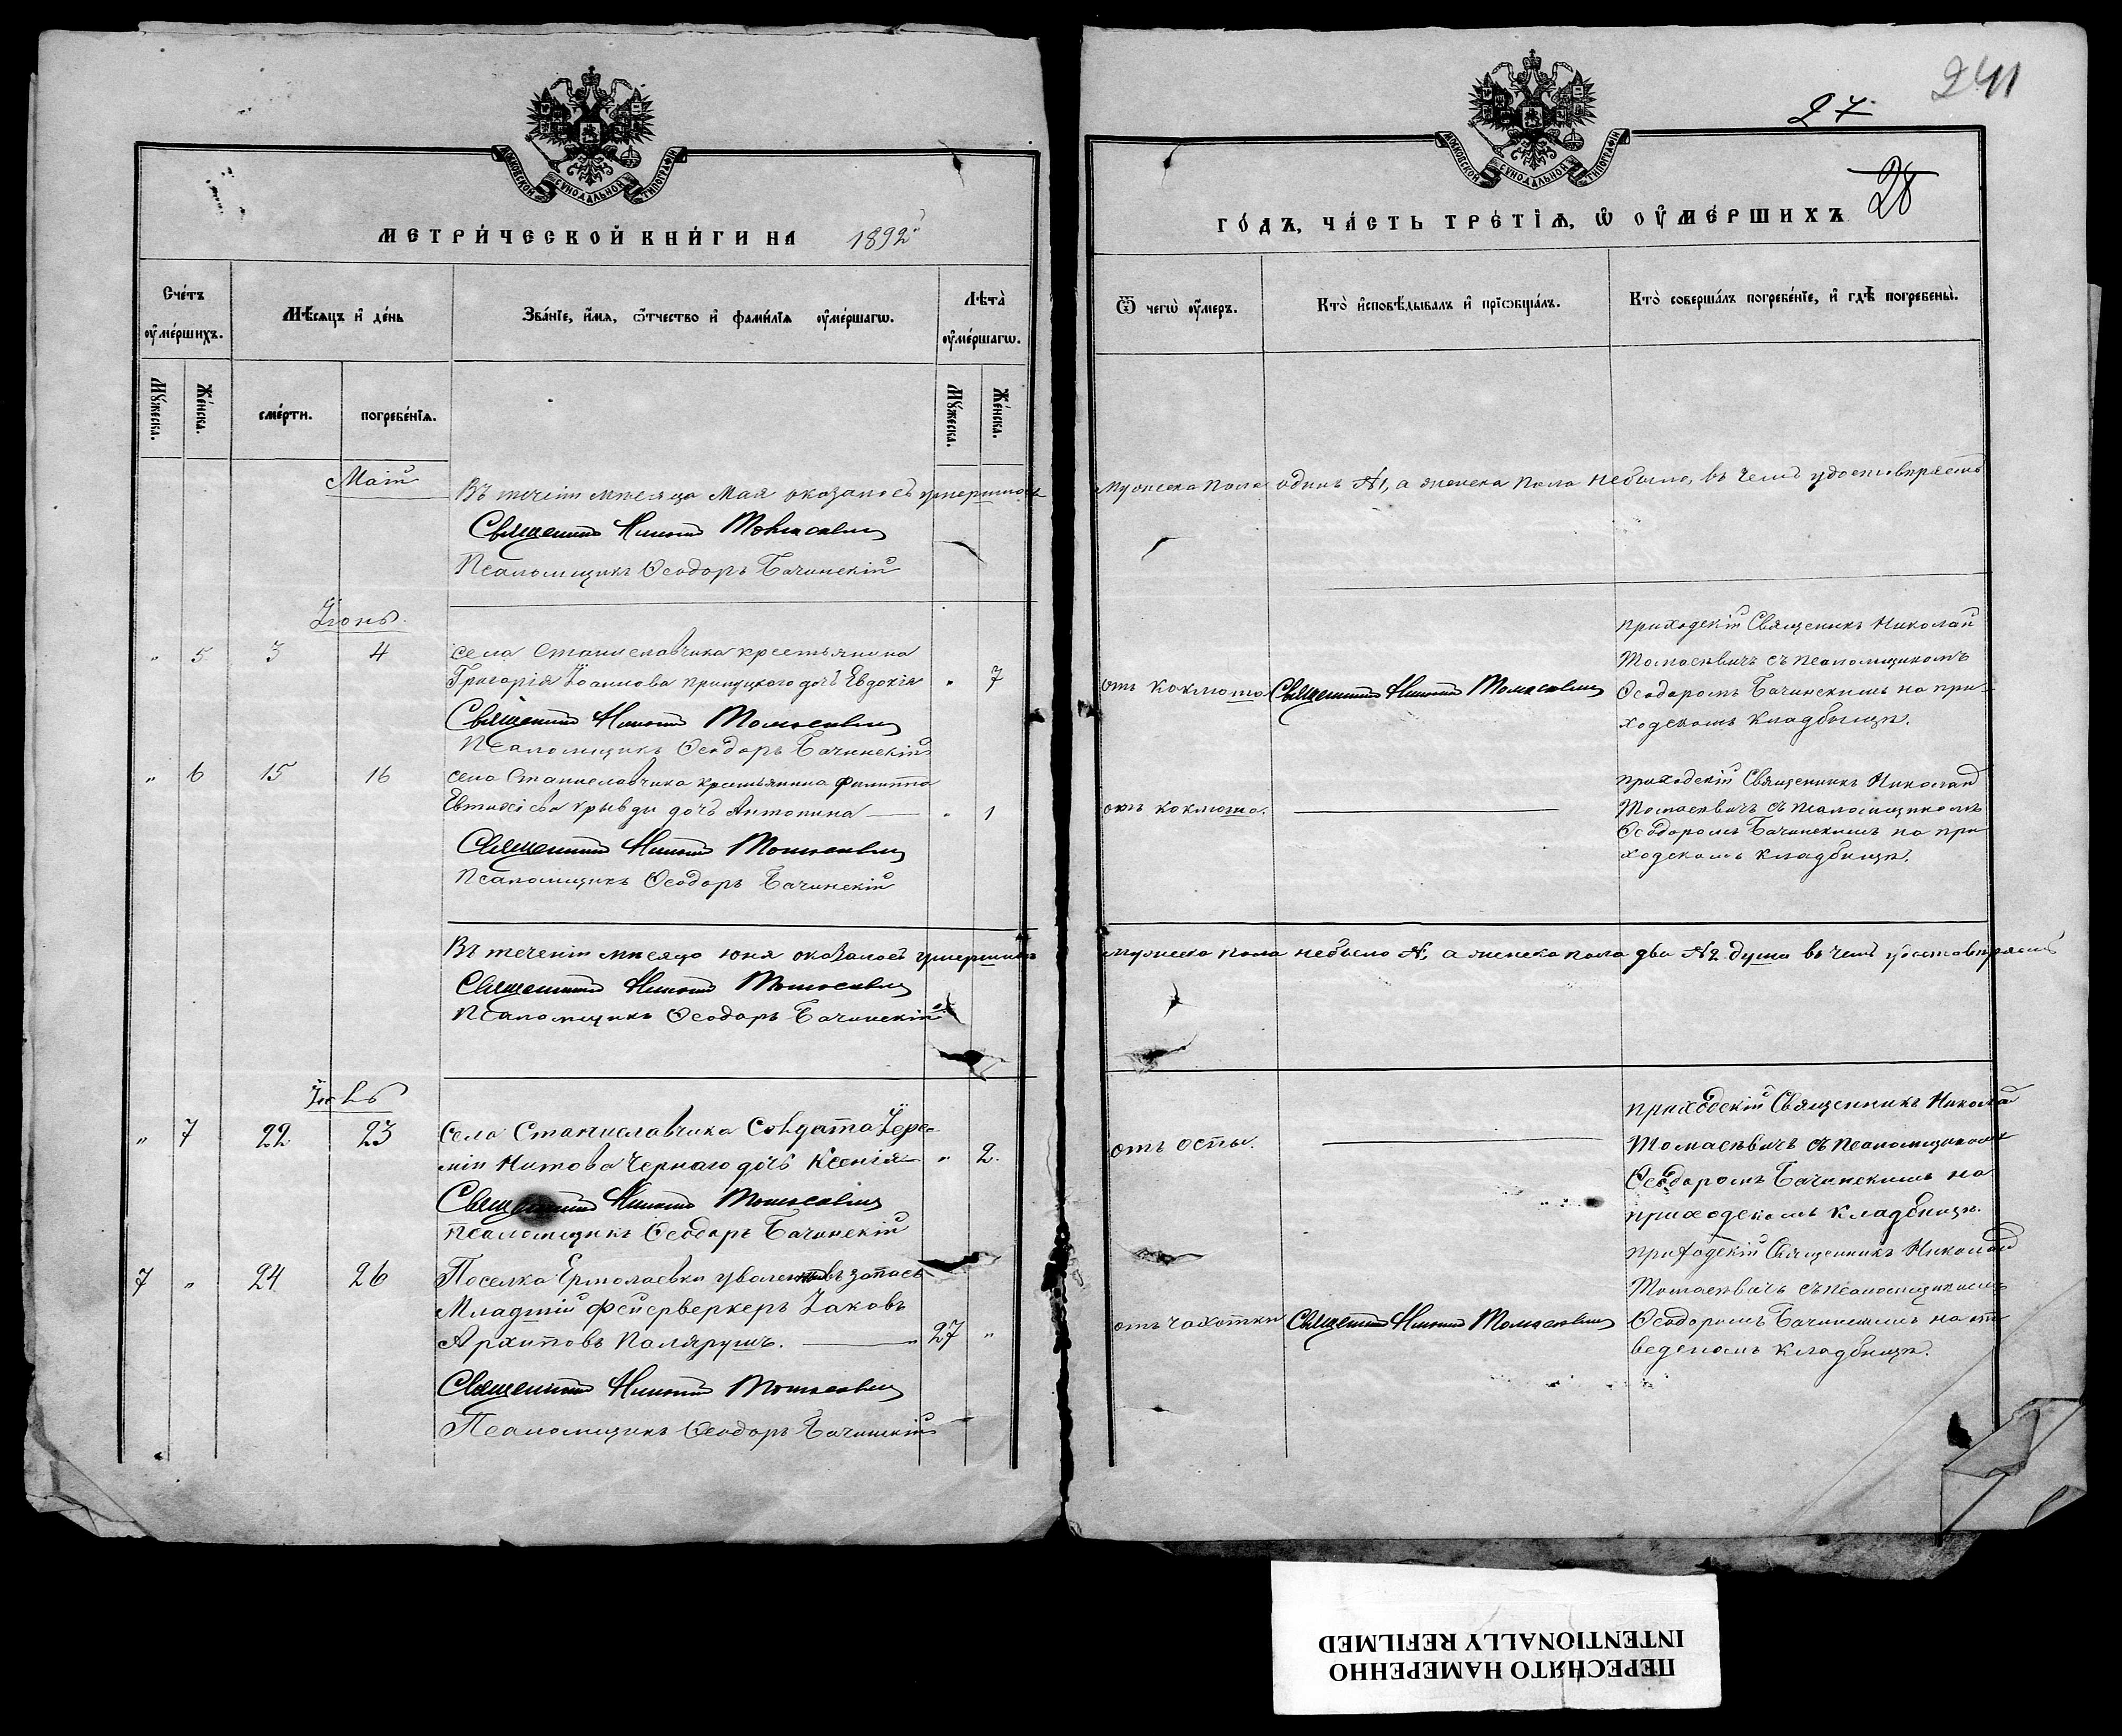 241
27
28
МОСКОВСКОЙ СУНОДАЛЬНОЙ ТИПОГРАФІИ
МЕТРИ́ЧЕСКОЙ КНИ́ГИ НА 1892й
Сче́тъ ᲂу҆ме́ршихъ.
Мѣ́сяцъ и҆ де́нь
Зва́нїе, и҆́мя, ѻ҆́тчество и҆ фами́лїя ᲂу҆ме́ршагѡ.
Лѣта̀ ᲂу҆ме́ршагѡ.
Му́жеска.
Же́нска.
сме́рти.
погребе́нїѧ.
Му́жеска.
Же́нска.
МОСКОВСКОЙ СУНОДАЛЬНОЙ ТИПОГРАФІИ
ГО́ДЪ, ЧА́СТЬ ТРЕ́ТІѦ, Ѡ҆ ОУ҆МЕ́РШИХЪ
Ѿ чегѡ̀ ᲂу҆́меръ.
Кто̀ и҆сповѣ́дывалъ и҆ прїѡбща́лъ.
Кто̀ соверша́лъ погребе́нїе, и҆ гдѣ̀ погребены̀.
Май
Въ теченіи мѣсяца Мая оказалось умершихъ мужеска пола одинъ №1, а женска пола небыло, въ чемъ удостовѣряетъ
Священникъ Николай Томасевичъ
Псаломщикъ Ѳеодоръ Бачинскій
Іюнь.
" 5 3 4 Села Станиславчика крестьянина
Григорія Іоаннова дочь Евдокія " 7
Священникъ Николай Томасевичъ
Псаломщикъ Ѳеодоръ Бачинскій
отъ коклюша
Священникъ Николай Томасевичъ
приходскій Священникъ Николай
Томасѣвичъ съ псаломщикомъ
Ѳеодоромъ Бачинскимъ на при-
ходскомъ кладбищѣ.
" 6 15 16 села Станиславчика крестьянина Филиппа
Евтихіева Крывды дочь Антонина " 1
Священникъ Николай Томасевичъ
Псаломщикъ Ѳеодоръ Бачинскій
отъ коклюша.
приходскій Священникъ Николай
Томасѣвичъ съ псаломщикомъ
Ѳеодоромъ Бачинскимъ на при-
ходскомъ кладбищѣ.
Въ теченіи мѣсяца юня оказалось умершихъ мужеска пола небыло №, а женска пола два №2 душа въ чемъ удостовѣряетъ
Священникъ Николай Томасевичъ
Псаломщикъ Ѳеодоръ Бачинскій
Іюль
" 7 22 23 Села Станиславчика Солдата Іере-
міи Титова Чернаго дочь Ксенія " 2.
Священникъ Николай Томасевичъ
псаломщикъ Ѳеодоръ Бачинскій
отъ оспы.
приходскій Священникъ Николай
Томасѣвичъ съ псаломщикомъ
Ѳеодоромъ Бачинскимъ на
приходскомъ кладбищѣ.
7 " 24 26 Поселка Ермолаевки въ запасъ
Младшій фейерверкеръ Іаковъ
Архиповъ Полярушъ. 27 "
Священникъ Николай Томасевичъ
Псаломщикъ Ѳеодоръ Бачинскій
отъ чахотки
Священникъ Николай Томасевичъ
приходскій Священникъ Николай
Томасѣвичъ съ псаломщикомъ
Ѳеодоромъ Бачинскимъ на от-
веденомъ кладбищѣ.
ПЕРЕСНЯТО НАМЕРЕННО
INTENTIONALLY REFILMED